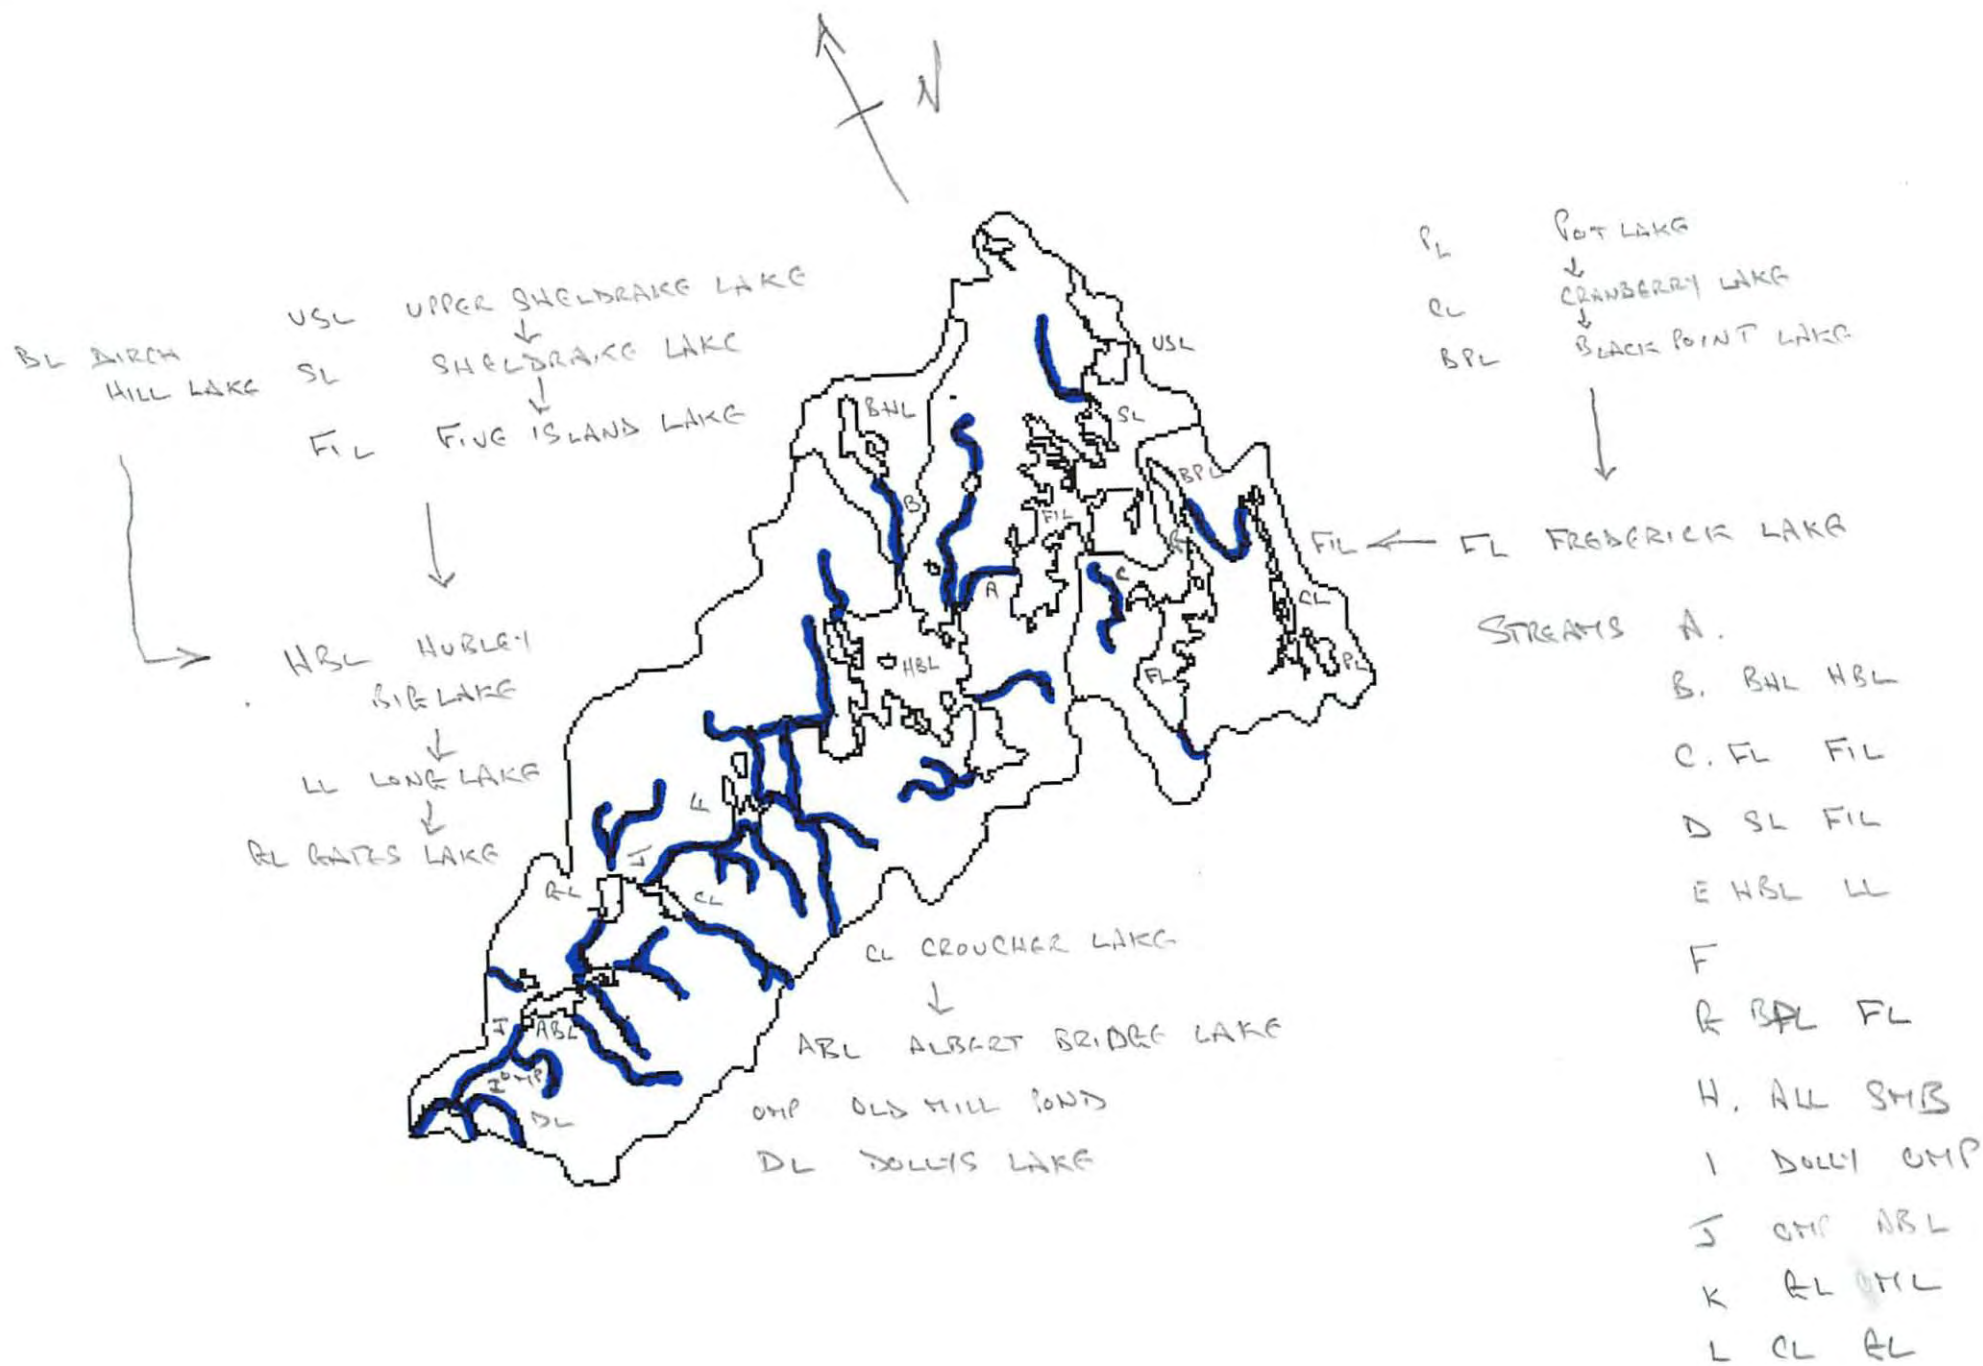 N
USL UPPER SHELDRAKE LAKE
↓
SL SHELDRAKE LAKE
↓
FIL FIVE ISLAND LAKE
BL BIRCH
HILL LAKE
HBL HUBLEY
BIG LAKE
↓
LL LONG LAKE
↓
GL GATES LAKE
PL POT LAKE
↓
CL CRANBERRY LAKE
↓
BPL BLACK POINT LAKE
FIL ← FL FREDERICK LAKE
USL
SL
BHL
B
BPL
FIL
G
A
C
CL
PL
FL
HBL
F
GL
CL
J
ABL
OMP
DL
CL CROUCHER LAKE
↓
ABL ALBERT BRIDGE LAKE
OMP OLD MILL POND
DL DOLLYS LAKE
STREAMS A.
B. BHL HBL
C. FL FIL
D SL FIL
E HBL LL
F
G BPL FL
H. ALL SMB
I DOLLY OMP
J OMP ABL
K GL
L CL GL